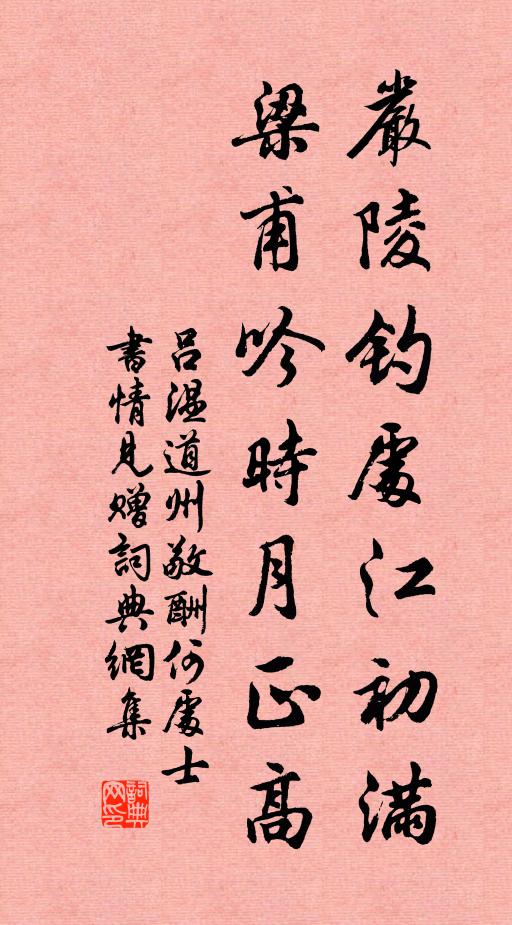 嚴陵釣處江初滿
梁甫吟時月正高
呂温道州敬酬何處士
書情見贈詞典網集
詞典
网印